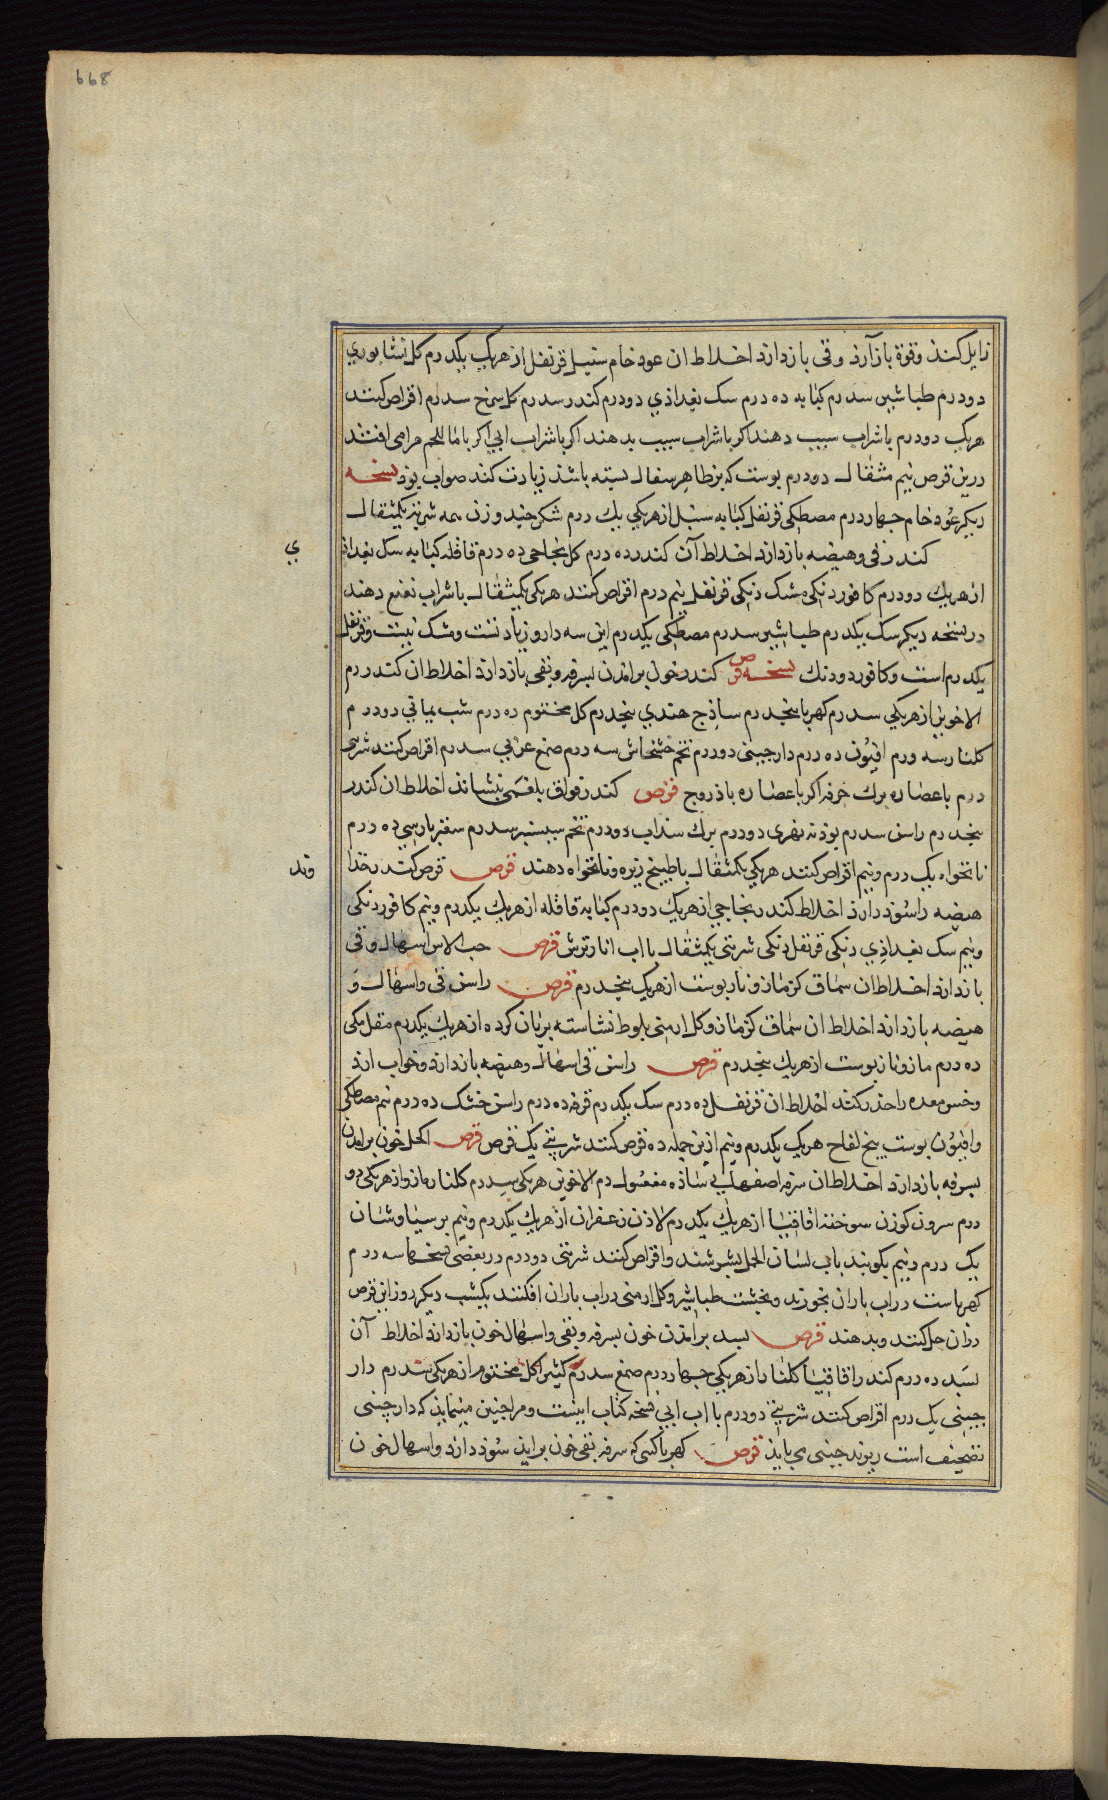 668
زایل کند وقوة باز آرد وقی باز دارد اخلاط ان عود خام سنبل قرنفل از هریک یکدرم کل نشابوری
دودرم طباشیر سدرم کبابه ده درم سک بغداذی دودرم کندر سدرم کل سرخ سدرم اقراص کنند
هریک دودرم باشراب سیب دهند اکر باشراب سیب بدهند اکر باشراب ابی اکر باما اللحم مرامی افتند
درین قرص نیم مثقال دودرم بوست که بر ظاهر سفال بسته باشد زیادت کند صواب بود نسخه
دیکر عود خام جهار درم مصطکی قرنفل کبابه سنبل از هریکی یک درم شکر جند وزن همه شربتی یکمثقال
کندر قی وهیضه باز دارد اخلاط آن کندر ده درم کل بخاحی ده درم قاقله کبابه سک بغداذ
ی
از هریک دودرم کافور دنکی مشک دنکی قرنفل نیم درم اقراص کنند هریکی یکمثقال باشراب نعنع دهند
در نسخه دیکر سک یکدرم طباشیر سدرم مصطکی یکدرم این سه دارو زیادتست ومشک نیست وقرنفل
یکدرم است وکافور دودنک نسخه قرص کندر خون برامدن بسرفه وبقی باز دارد اخلاط ان کندر دم
الاخوین از هریکی سدرم کهربا بنجدرم ساذج هندی بنجدرم کل مختوم ده درم شب یمانی دودرم
کلنار سه درم افیون ده درم دارجینی دودرم تخم خشخاش سه درم صمغ عربی سدرم اقراص کنند شربتی
درم باعصاره برک خرفه اکر باعصاره باذروج قرص کندر فواق بلغمی بنشاند اخلاط ان کندر
بنجدرم راسن سدرم بوذنه نهری دودرم برک سذاب دودرم تخم سیسنبر سدرم سعتر بارسی ده درم
نانخواه یک درم ونیم اقراص کنند هریکی یکمثقال باطبیخ زیره ونانخواه دهند قرص قرص کند رقذا
وند
هیضه را سوذ دارد اخلاط کندر بخاجی از هریک دودرم کبابه قاقله از هریک یکدرم ونیم کافور دنکی
ونیم سک بغداذی دنکی قرنفل دنکی شربتی یکمثقال بااب انار ترش قرص حب الاس اسهال وقی
باز دارد اخلاط ان سماق کزمازو نار بوست از هریک بنجدرم قرص راسن قی واسهال و
هیضه باز دارد اخلاط ان سماق کزمازو کل ارمنی بلوط نشاسته بریان کرده از هریک یکدرم مقل مکی
ده درم مازو نار بوست از هریک بنجدرم قرص راسن قی اسهال وهیضه باز دارد وخواب ارد
وخس معده را حذر کند اخلاط ان قرنفل ده درم سک یکدرم قرفه ده درم راسن خشک ده درم نیم مصطکی
وافیون بوست بیخ لفاح هریک یکدرم ونیم ازین جمله ده قرص کنند شربتی یک قرص قرص الکحل خون برامدن
بسرفه باز دارد اخلاط ان سرمه اصفهانی شاذه مغسول دم الاخوین هریکی سدرم کلنار مازو از هریکی دو
درم سرون کوزن سوخته اقاقیا از هریک یکدرم لاذن زعفران از هریک یکدرم ونیم برسیاوشان
یک درم ونیم بکوبند باب لسان الحمل بسرشند واقراص کنند شربتی دودرم در بعضی نسخها سه درم
کهرباست در اب باران بخورند ونخست طباشیر وکل ارمنی در اب باران افکنند یکشب دیکر روز این قرص
دران حل کنند وبدهند قرص بسد برامدن خون بسرفه وبقی واسهال خون باز دارد اخلاط آن
بسد ده درم کندر اقاقیا کلنار از هریکی جهار درم صمغ سدرم کثیرا کل مختوم از هریکی سدرم دار
جینی یک درم اقراص کنند شربتی دودرم بااب ابی نسخه کتاب اینست ومرا جنین مینماید که دارچینی
تضحیف است ریوند جینی می باید قرص کهربا کسی که سرفه بقی خون براید سوذ دارد واسهال خون